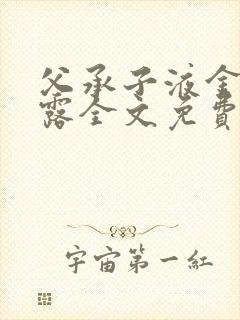 父承子液金
露全文免費
宇宙第一紅